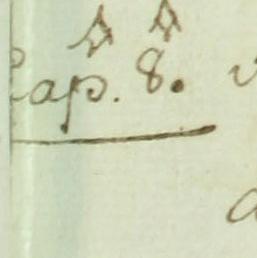 Cap. 8.